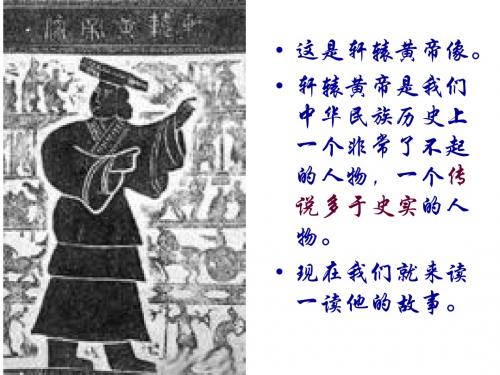 軒轅黃帝
• 这是轩辕黄帝像。
• 轩辕黄帝是我们
中华民族历史上
一个非常了不起
的人物，一个传
说多于史实的人
物。
• 现在我们就来读
一读他的故事。